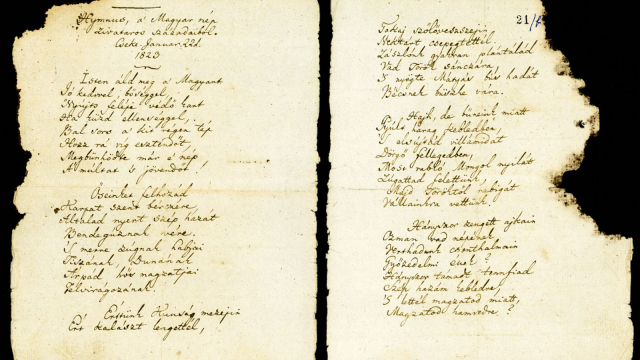 Hymnus, a' Magyar nép
zivataros századaiból.
Cseke Januar. 22d.
1823
Isten áld meg a' Magyart
Jó kedvvel, bőséggel,
Nyújts feléje védő kart
Ha küzd ellenséggel;
Bal sors a' kit régen tép
Hozz rá víg esztendőt,
Megbűnhödte már e' nép
A' multat 's jövendőt!
Őseinket felhozád
Kárpát szent bérczére,
Általad nyert szép hazát
Bendegúznak vére.
'S merre zúgnak habjai
Tiszának, Dunának
Árpád hős magzatjai
Felvirágozának.
Értünk Kunság mezején
Ért kalászt lengettél,
21/
Tokaj szőlővesszein
Nektárt csepegtettél.
Zászlónk gyakran plántálád
Vad Török sánczára,
'S nyögte Mátyás bús hadát
Bécsnek büszke vára.
Hajh, de bűneink miatt
Gyúlt harag kebledben,
'S elsújtád villámidat
Dörgő fellegedben,
Most rabló Mongol nyilát
Zúgattad felettünk,
Majd Töröktől rabigát
Vállainkra vettünk.
Hányszor zengett ajkain
Ozman vad népének
Vert hadunk csonthalmain
Győzedelmi ének?
Hányszor támadt tennfiad
Szép hazám kebledre,
'S lettél magzatod miatt,
Magzatod hamvvedre?